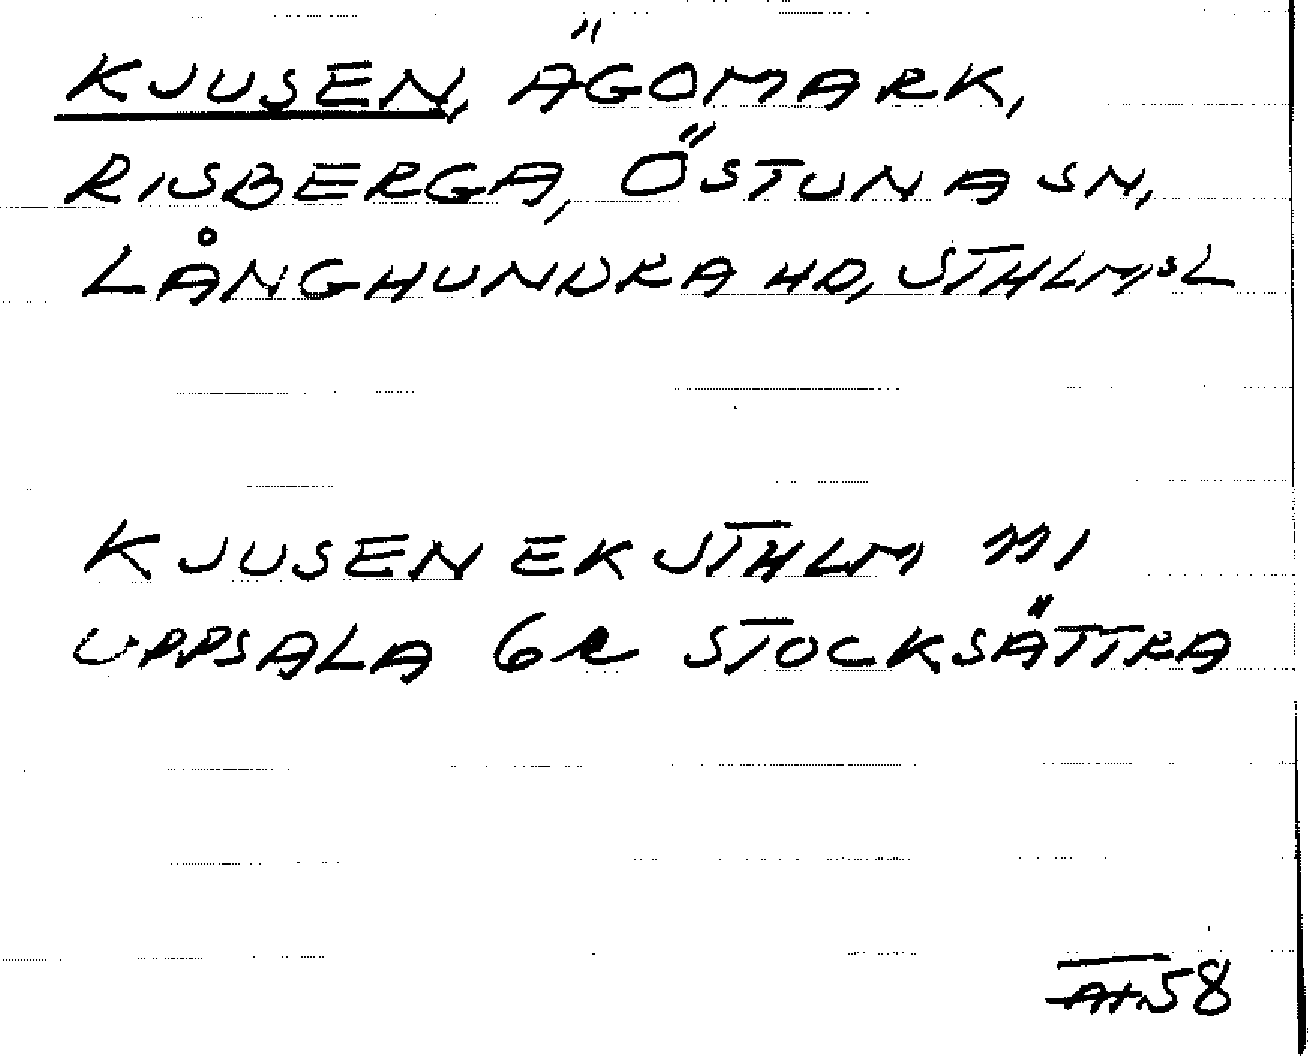 KJUSEN, ÄGOMARK,
RISBERGA, ÖSTUNA SN,
LÅNGHUNDRA HD, STHLM:S L
KJUSEN EK STHLM 111
UPPSALA 6e STOCKSÄTTRA
58